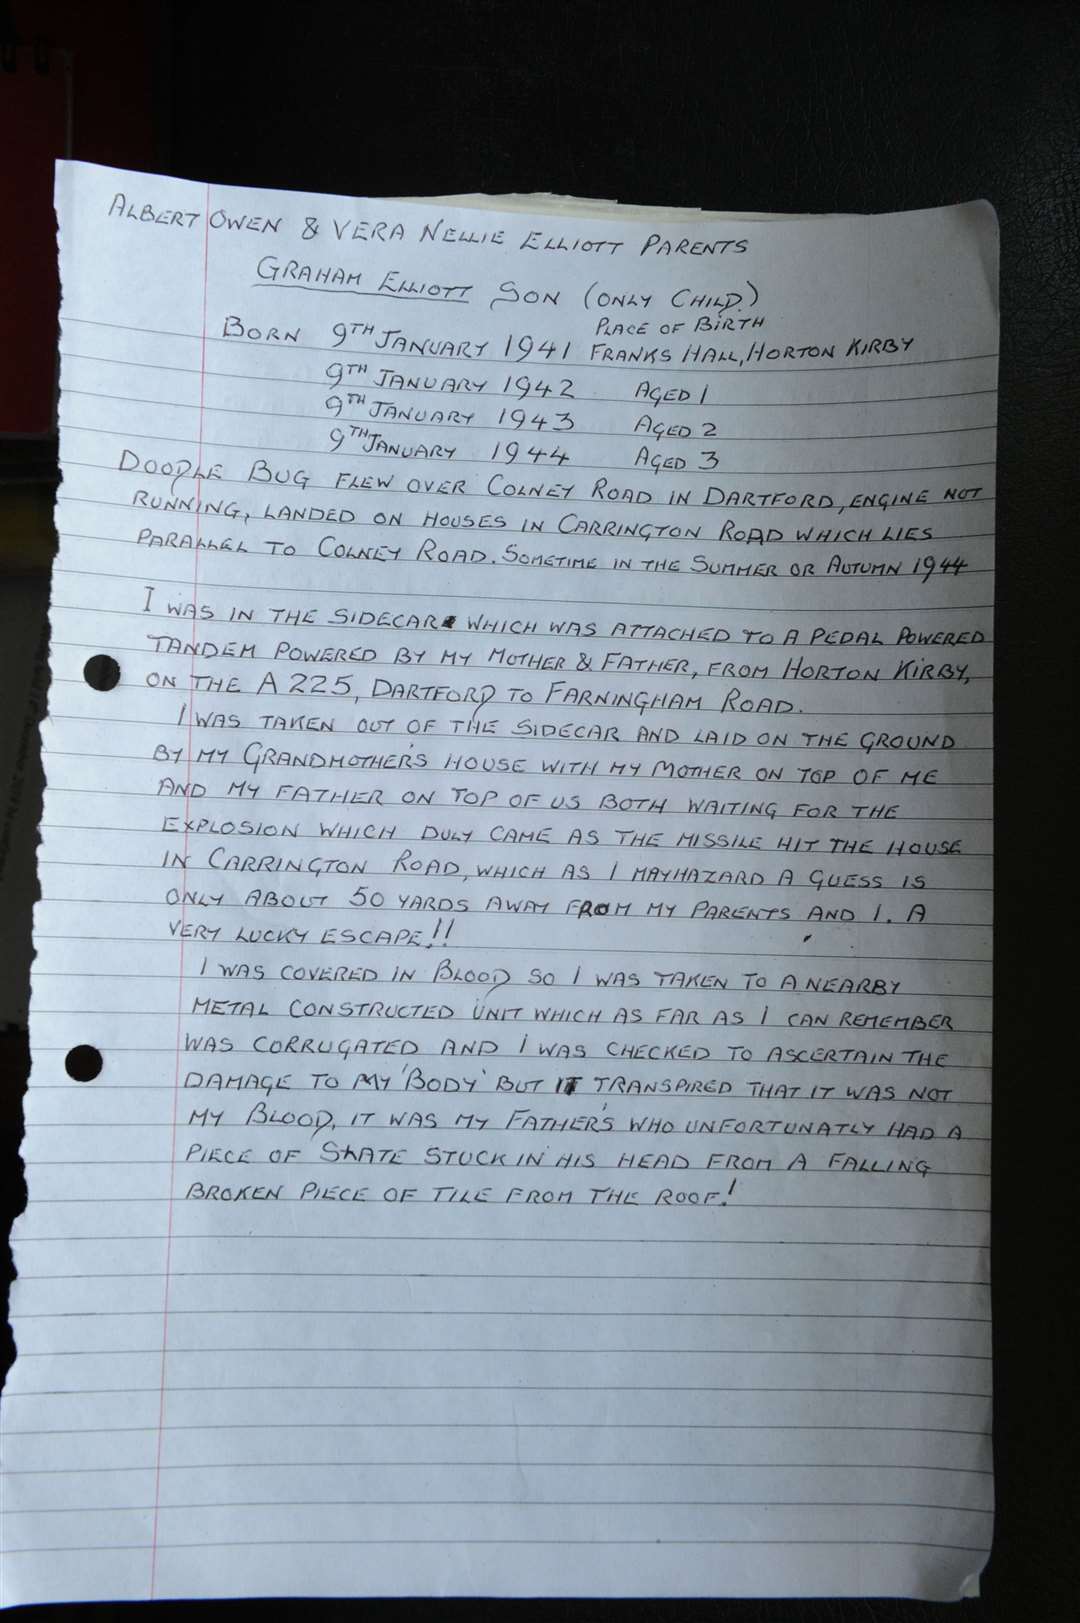 ALBERT OWEN & VERA NELLIE ELLIOTT PARENTS
GRAHAM ELLIOTT SON (ONLY CHILD)
PLACE OF BIRTH
BORN 9TH JANUARY 1941 FRANKS HALL, HORTON KIRBY
9TH JANUARY 1942 AGED 1
9TH JANUARY 1943 AGED 2
9TH JANUARY 1944 AGED 3
DOODLE BUG FLEW OVER COLNEY ROAD IN DARTFORD, ENGINE NOT
RUNNING, LANDED ON HOUSES IN CARRINGTON ROAD WHICH LIES
PARALLEL TO COLNEY ROAD. SOMETIME IN THE SUMMER OR AUTUMN 1944
I WAS IN THE SIDECAR WHICH WAS ATTACHED TO A PEDAL POWERED
TANDEM POWERED BY MY MOTHER & FATHER, FROM HORTON KIRBY,
ON THE A225, DARTFORD TO FARNINGHAM ROAD.
I WAS TAKEN OUT OF THE SIDECAR AND LAID ON THE GROUND
BY MY GRANDMOTHER'S HOUSE WITH MY MOTHER ON TOP OF ME
AND MY FATHER ON TOP OF US BOTH WAITING FOR THE
EXPLOSION WHICH DULY CAME AS THE MISSILE HIT THE HOUSE
IN CARRINGTON ROAD, WHICH AS I MAYHAZARD A GUESS IS
ONLY ABOUT 50 YARDS AWAY FROM MY PARENTS AND I. A
VERY LUCKY ESCAPE!!
I WAS COVERED IN BLOOD SO I WAS TAKEN TO A NEARBY
METAL CONSTRUCTED UNIT WHICH AS FAR AS I CAN REMEMBER
WAS CORRUGATED AND I WAS CHECKED TO ASCERTAIN THE
DAMAGE TO MY 'BODY' BUT IT TRANSPIRED THAT IT WAS NOT
MY BLOOD, IT WAS MY FATHER'S WHO UNFORTUNATLY HAD A
PIECE OF SLATE STUCK IN HIS HEAD FROM A FALLING
BROKEN PIECE OF TILE FROM THE ROOF!